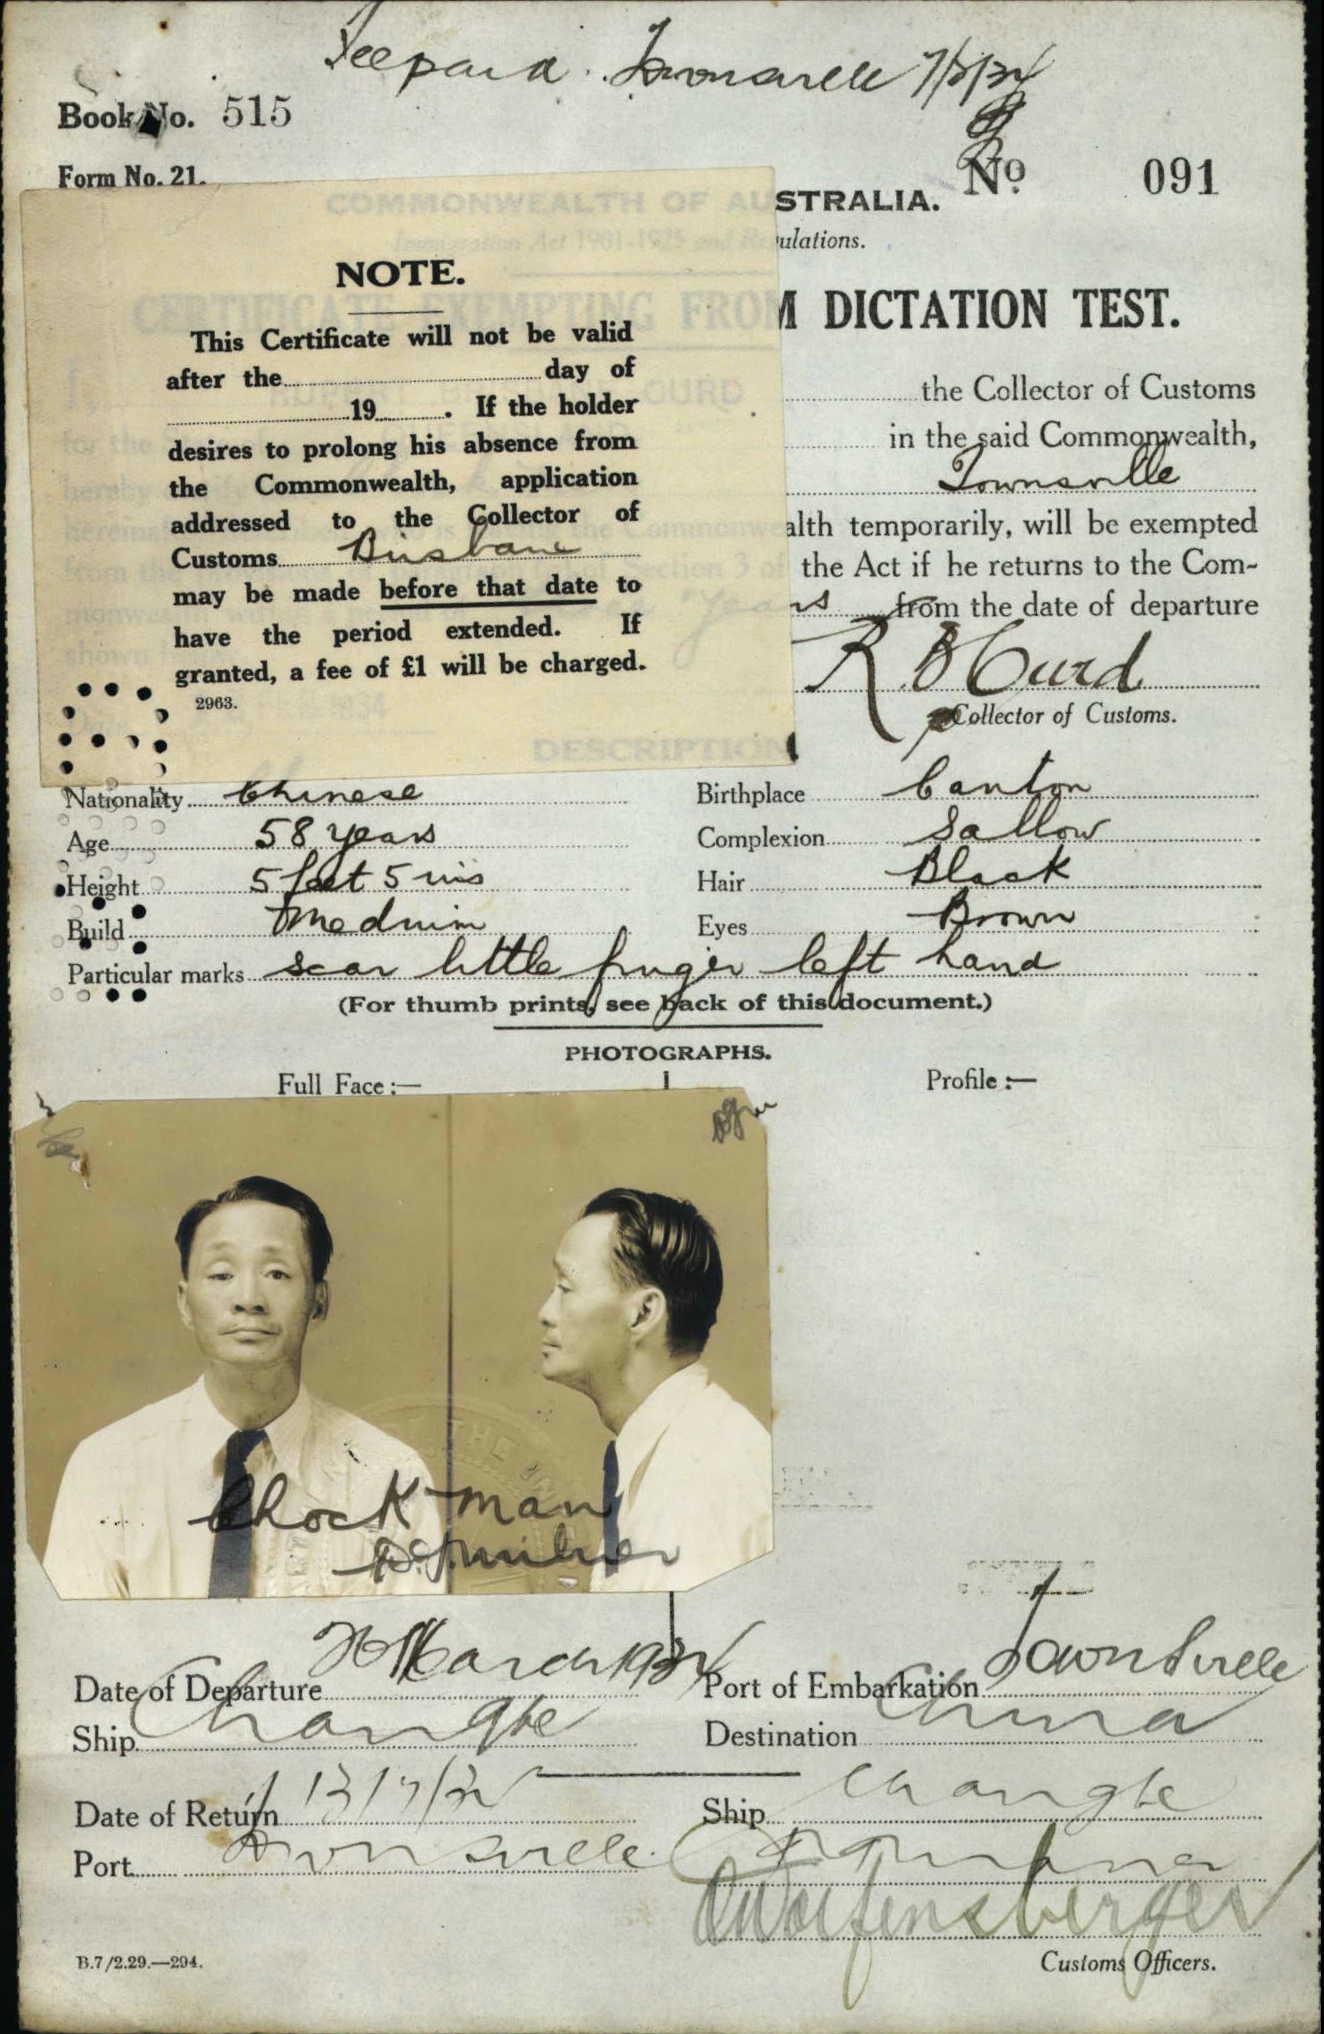 Fee paid. Townsville 7/3/34
Book No. 515
Form No. 21.
No. 091
COMMONWEALTH OF AUSTRALIA.
Immigration Act 1901-1925 and Regulations.
CERTIFICATE EXEMPTING FROM DICTATION TEST.
NOTE.
This Certificate will not be valid
after the day of
19 . If the holder
desires to prolong his absence from
the Commonwealth, application
addressed to the Collector of
Customs Brisbane
may be made before that date to
have the period extended. If
granted, a fee of £1 will be charged.
2963.
the Collector of Customs
in the said Commonwealth,
Townsville
alth temporarily, will be exempted
the Act if he returns to the Com-
from the date of departure
R B Curd
Collector of Customs.
DESCRIPTION
Nationality Chinese Birthplace Canton
Age 58 years Complexion Sallow
Height 5 feet 5 ins Hair Black
Build Medium Eyes Brown
Particular marks scar little finger left hand
(For thumb prints, see back of this document.)
PHOTOGRAPHS.
Full Face:— Profile:—
Chock Man
Date of Departure March 1934 Port of Embarkation Townsville
Ship Changte Destination China
Date of Return Ship Changte
Port Townsville
Customs Officers.
B.7/2.29.—294.